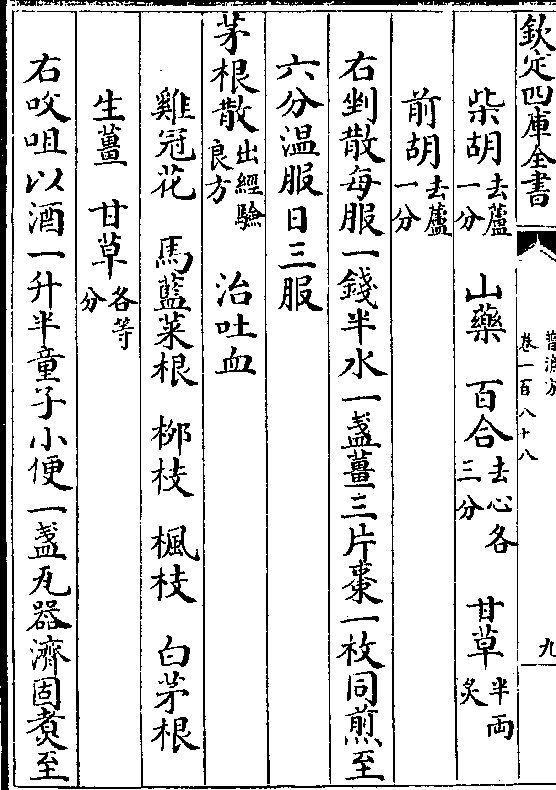 欽定四庫全書
普濟方
卷一百八十八
九
柴胡去蘆一分 山藥 百合去心各三分 甘草半兩炙
前胡去蘆一分
右剉散每服一錢半水一盞薑三片棗一枚同煎至
六分温服日三服
茅根散出經驗良方 治吐血
雞冠花 馬藍菜根 栁枝 楓枝 白茅根
生薑 甘草各等分
右㕮咀以酒一升半童子小便一盞瓦器濟固煑至